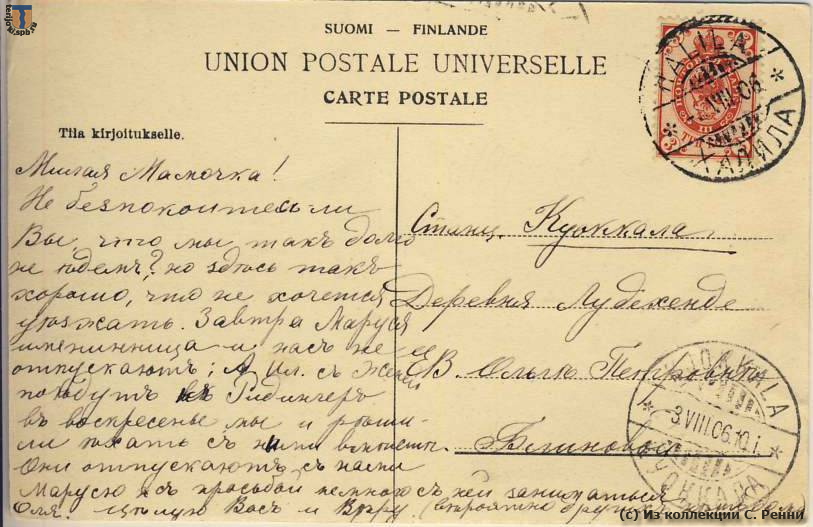 terijoki.spb.ru
SUOMI — FINLANDE
UNION POSTALE UNIVERSELLE
CARTE POSTALE
Tila kirjoitukselle.
HALILA
VIII.06
ХАЛИЛА
Милая Мамочка!
Не безпокоитесь-ли
Вы, что мы такъ долго
не ѣдемъ? но здѣсь такъ
хорошо, что не хочется
уѣзжать. Завтра Маруся
именинница и насъ не
отпускаютъ; Ил. съ
поѣдутъ въ
въ воскресенье мы и рѣши-
ли ѣхать съ ними вмѣстѣ.
Они отпускаютъ съ нами
Марусю съ просьбой немного съ ней заниматься
Оля. Цѣлую Васъ и Вѣру
Станц. Куоккала.
Деревня
ЕВ. Ольгѣ Петровнѣ
KUOKKALA
3.VIII.06.10 i.
КУОККАЛА
(c) Из коллекции С. Ренни